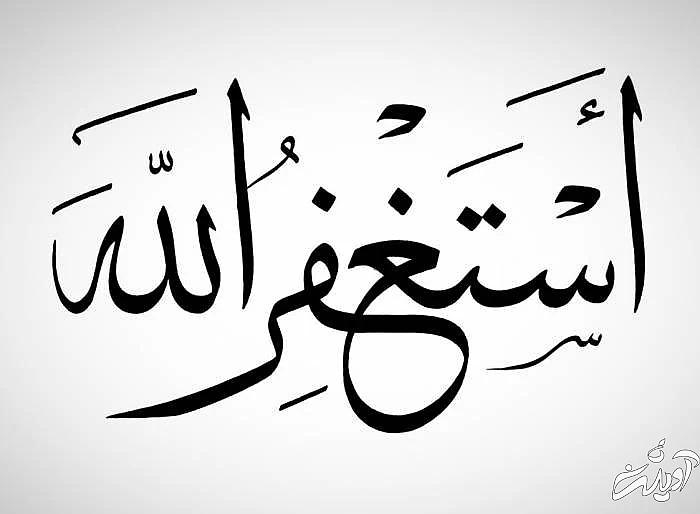 أَسْتَغْفِرُ اللَّهَ
آویشن